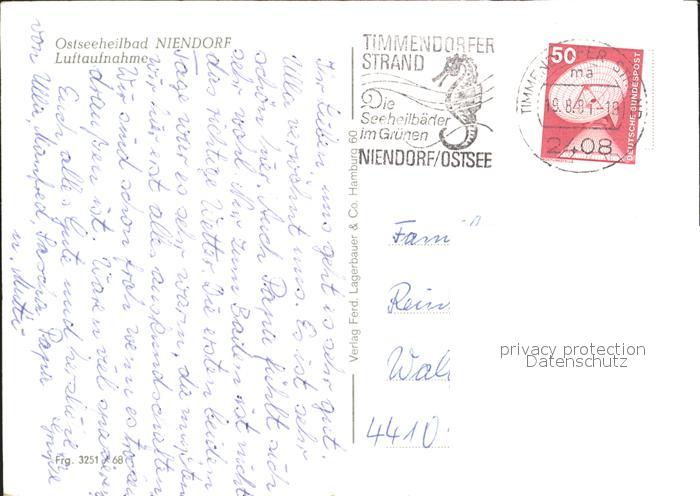 Ostseeheilbad NIENDORF
Luftaufnahme
TIMMENDORFER
STRAND
Die
Seeheilbäder
im Grünen
NIENDORF/OSTSEE
50
DEUTSCHE BUNDESPOST
ma
19.8.81-18
2408
Ihr Lieben, uns geht es sehr gut.
Ulla verwöhnt uns. Es ist sehr
schön hier. Auch Papa fühlt sich
sehr wohl. Nur zum Baden ist nicht
das richtige Wetter. Die ersten beiden
Tage war es sehr warm, da mußten
wir erst alles auskundschaften.
Wir sind schon froh wenn es trocken
draußen ist. Waren viel spazieren.
Euch alles Gute und herzliche Grüße
von Ulla, Manfred, Sascha, Papa
u. Mutti
Verlag Ferd. Lagerbauer & Co. Hamburg 60
Fam
Rein
Wal
4410
privacy protection
Datenschutz
Frg. 3251 A 68